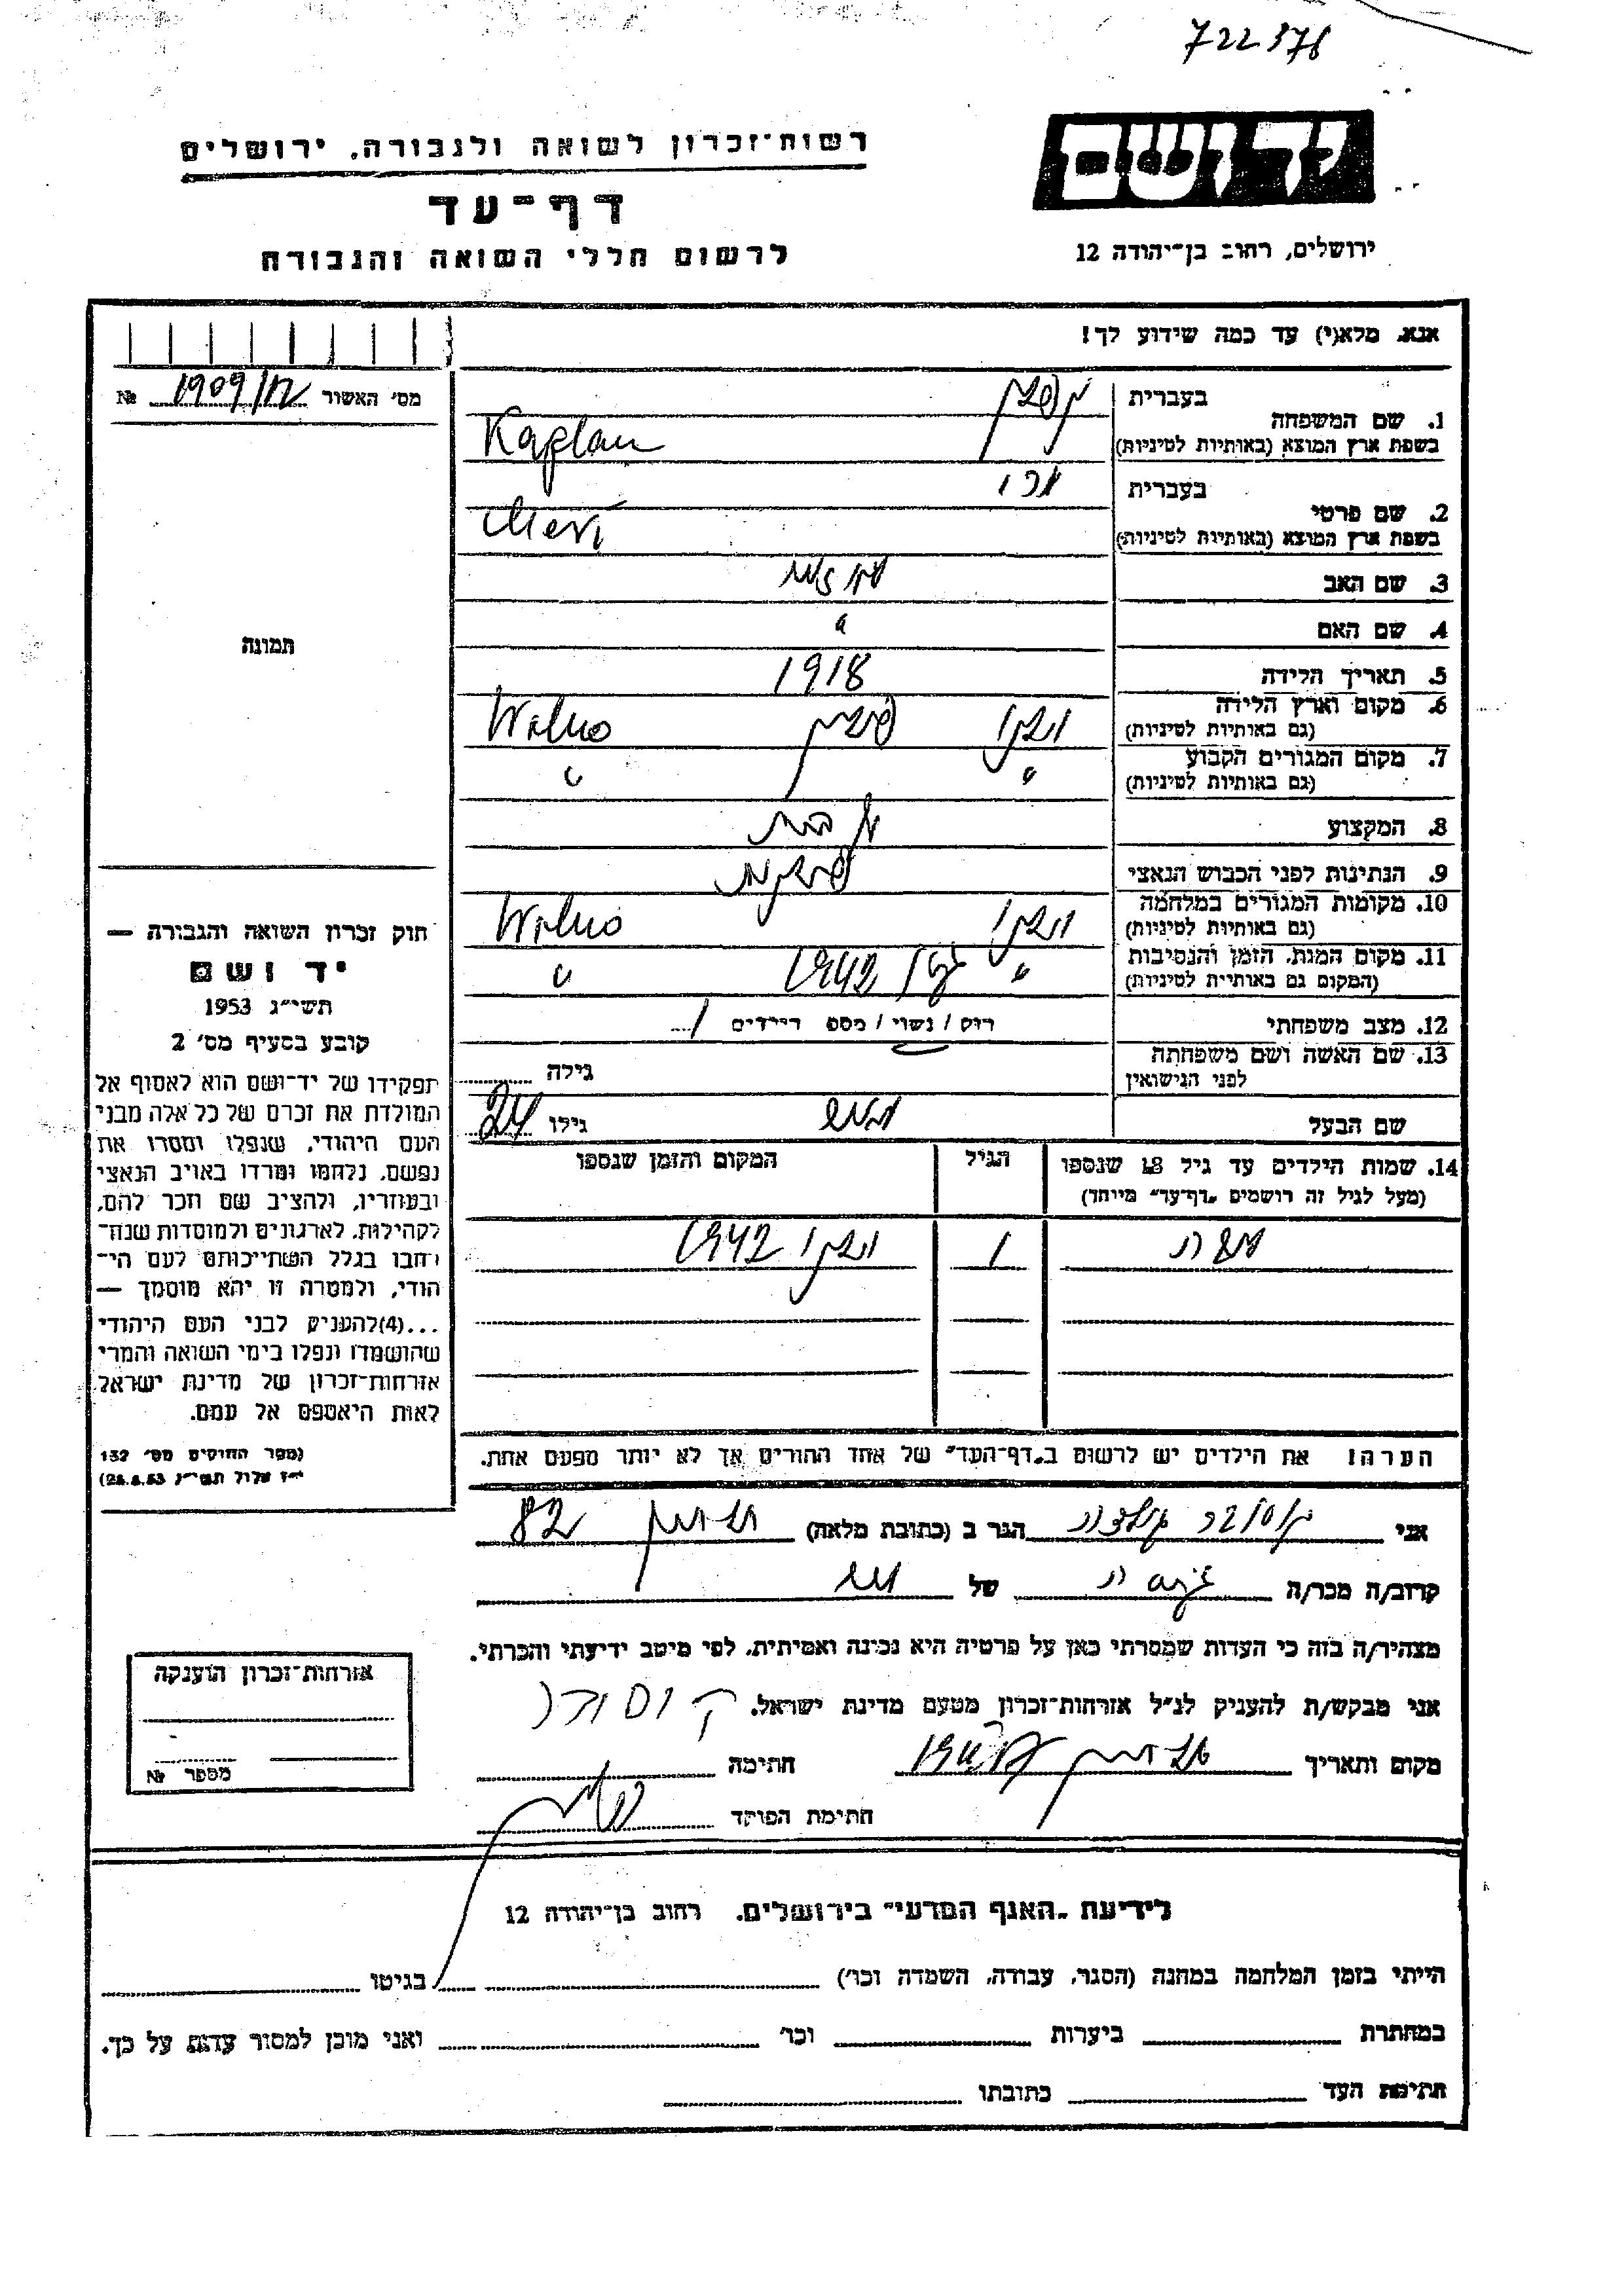 722376
יד ושם
רשות־זכרון לשואה ולגבורה, ירושלים
דף־עד
לרשום חללי השואה והגבורה
ירושלים, רחוב בן־יהודה 12
אנא, מלא(י) עד כמה שידוע לך!
מס' האשור № 1909/
בעברית קפלן
1. שם המשפחה
בשפת ארץ המוצא (באותיות לטיניות) Kaplan
בעברית מרי
2. שם פרטי
בשפת ארץ המוצא (באותיות לטיניות) Meri
3. שם האב
4. שם האם
5. תאריך הלידה 1918
6. מקום וארץ הלידה וילנו פולין Wilno
(גם באותיות לטיניות)
7. מקום המגורים הקבוע " "
(גם באותיות לטיניות)
8. המקצוע
9. הנתינות לפני הכבוש הנאצי פולנית
10. מקומות המגורים במלחמה וילנו Wilno
(גם באותיות לטיניות)
11. מקום המות, הזמן והנסיבות " גטו 1942 "
(המקום גם באותיית לטיניות)
12. מצב משפחתי רוק / נשוי / מספ הילדים 1
13. שם האשה ושם משפחתה
לפני הנישואין גילה
שם הבעל גילו 24
14. שמות הילדים עד גיל 18 שנספו הגיל המקום והזמן שנספו
(מעל לגיל זה רושמים "דף־עד" מייחד)
1 וילנו 1942
הערה! את הילדים יש לרשום ב"דף־העד" של אחד ההורים אך לא יותר מפעם אחת.
תמונה
חוק זכרון השואה והגבורה —
יד ושם
תשי"ג 1953
קובע בסעיף מס' 2
תפקידו של יד־ושם הוא לאסוף אל
המולדת את זכרם של כל אלה מבני
העם היהודי, שנפלו ומסרו את
נפשם, נלחמו ומרדו באויב הנאצי
ובעוזריו, ולהציב שם וזכר להם,
לקהילות, לארגונים ולמוסדות שנח־
רבו בגלל השתייכותם לעם הי־
הודי, ולמטרה זו יהא מוסמך —
...(4)להעניק לבני העם היהודי
שהושמדו ונפלו בימי השואה והמרי
אזרחות־זכרון של מדינת ישראל
לאות היאספם אל עמם.
(ספר החוקים מס' 132
י"ז אלול תשי"ג 28.8.53)
אני הגר ב (כתובת מלאה) 82
קרוב/ה מכר/ה של
מצהיר/ה בזה כי העדות שמסרתי כאן על פרטיה היא נכינה ואמיתית, לפי מיטב ידיעתי והכרתי.
אני מבקש/ת להעניק לנ"ל אזרחות־זכרון מטעם מדינת ישראל.
מקום ותאריך חתימה
חתימת הפוקד
אזרחות־זכרון הוענקה
מספר №
לידיעת "האגף המדעי" בירושלים, רחוב בן־יהודה 12
הייתי בזמן המלחמה במחנה (הסגר, עבודה, השמדה וכו') בגיטו
במחתרת ביערות וכו' ואני מוכן למסור עדות על כך.
חתימת העד כתובתו